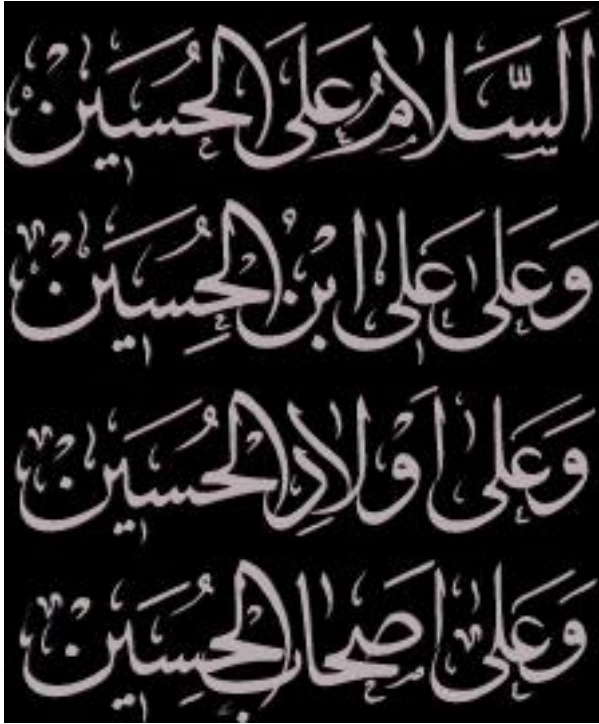 اَلسَّلامُ عَلَى الحُسَين
وَعَلى عَلى ابنِ الحُسَين
وَعَلى اَولادِ الحُسَين
وَعَلى اَصحاب الحُسَين